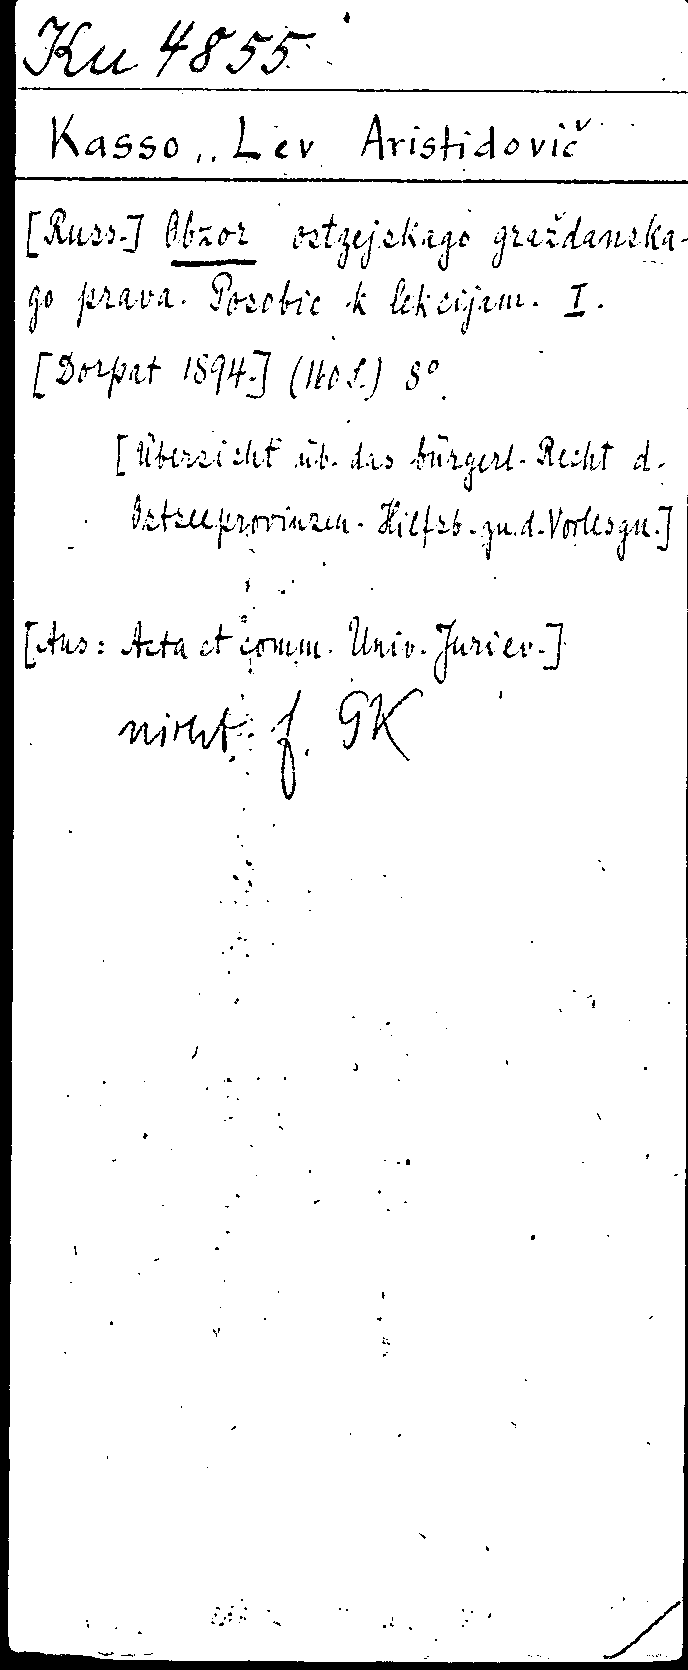 Ku 4855
Kasso, Lev Aristidovič
[Russ.] Obzor ostzejskago graždanska-
go prava. Posobie k lekcijam. I.
[Dorpat 1894.] (160 S.) 8°.
[Übersicht üb. das bürgerl. Recht d.
Ostseeprovinzen. Hilfsb. zu d. Vorlesgn.]
[Aus: Acta et comm. Univ. Juriev.]
nicht f. GK